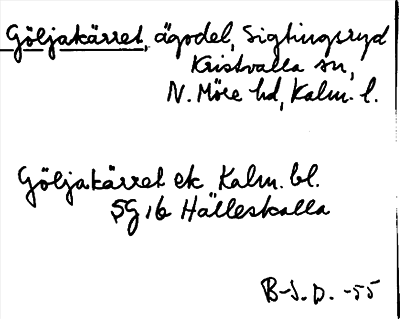 Göljakärret, ägodel, Sigtingsryd
Kristvalla sn,
N. Möre hd, Kalm. l.
Göljakärret ek Kalm. bl.
5G 16 Hälleskalla
B-J. D. -55